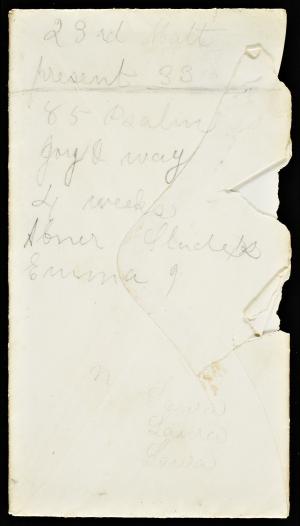 23rd Matt
present 33
85 Psalm
Joy & way
4 weeks
Abner
Emma 9
n
Laura
Laura
Laura